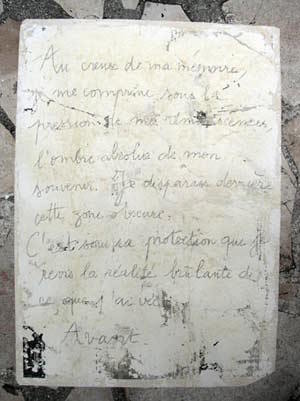 Au creux de ma mémoire,
je me comprime sous la
pression de mes réminiscences,
l'ombre absolue de mon
souvenir. Et je disparais derrière
cette zone obscure.
C'est sous sa protection que je
revois la réalité brûlante de
ce que j'ai vécu
Avant.